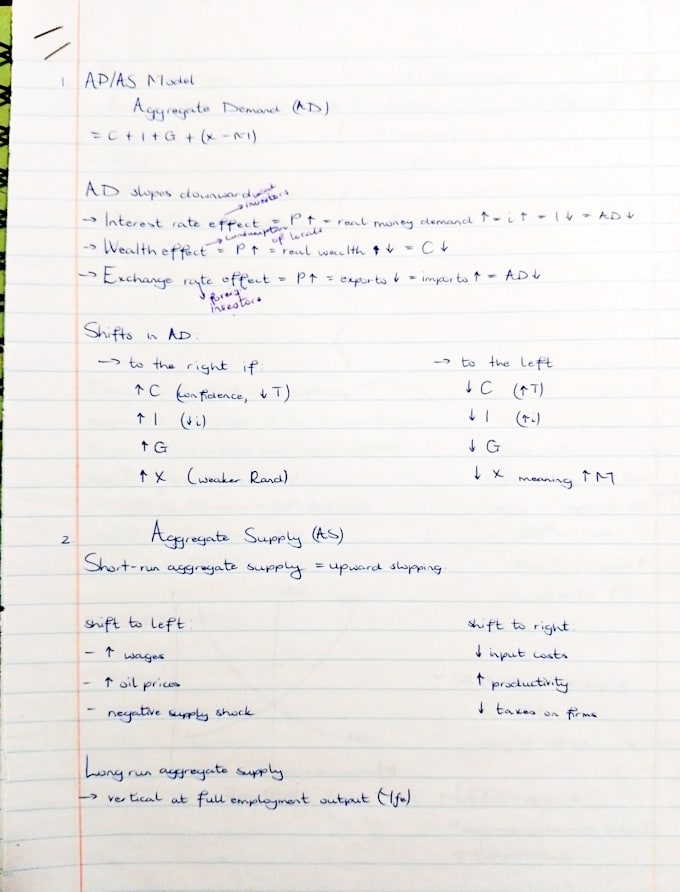 1 AD/AS Model
Aggregate Demand (AD)
= C + I + G + (X - M)
AD slopes downward
→ investors
→ Interest rate effect = P↑ = real money demand ↑ = i↑ = I↓ = AD↓
→ consumption of locals
→ Wealth effect = P↑ = real wealth ↓ = C↓
→ Exchange rate effect = P↑ = exports ↓ = imports ↑ = AD↓
↓ foreign
investors
Shifts in AD:
→ to the right if: → to the left
↑ C (confidence, ↓T) ↓ C (↑T)
↑ I (↓i) ↓ I (↑i)
↑ G ↓ G
↑ X (weaker Rand) ↓ X meaning ↑M
2. Aggregate Supply (AS)
Short-run aggregate supply = upward slopping.
shift to left: shift to right:
- ↑ wages ↓ input costs
- ↑ oil prices ↑ productivity
- negative supply shock ↓ taxes on firms
Long run aggregate supply
→ vertical at full employment output (Yfe)